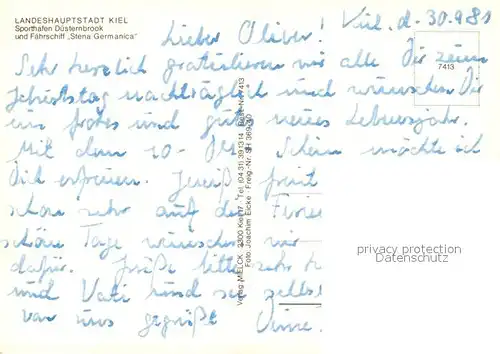 LANDESHAUPTSTADT KIEL
Sporthafen Düsternbrook
und Fährschiff „Stena Germanica"
Kiel, d. 30.9.81
Lieber Oliver!
7413
Sehr herzlich gratulieren wir alle Dir zum
Geburtstag nachträglich und wünschen Dir
ein frohes und gutes neues Lebensjahr.
Mit dem 10- Schein möchte ich
Dich erfreuen.
schon sehr auf die
schöne Tage wünschen wir
dafür. Grüße bitte sehr
und Vati und sei selbst
von uns gegrüßt
Verlag MELCK, 2300 Kiel 17, Tel. (04 31) 39 13 14
Foto: Joachim Eicke
privacy protection
Datenschutz